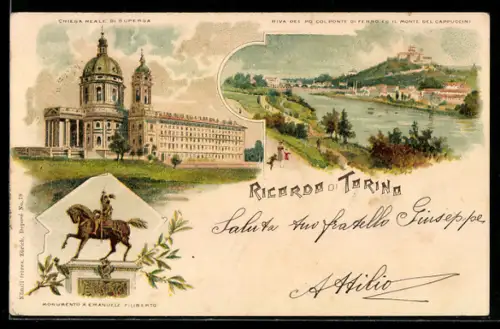 CHIESA REALE DI SUPERGA
RIVA DEL PO COL PONTE DI FERRO ED IL MONTE DEI CAPPUCCINI
RICORDO DI TORINO
Saluta tuo fratello Giuseppe
Attilio
MONUMENTO A EMANUELE FILIBERTO
Künzli frères, Zürich. Déposé No. 19